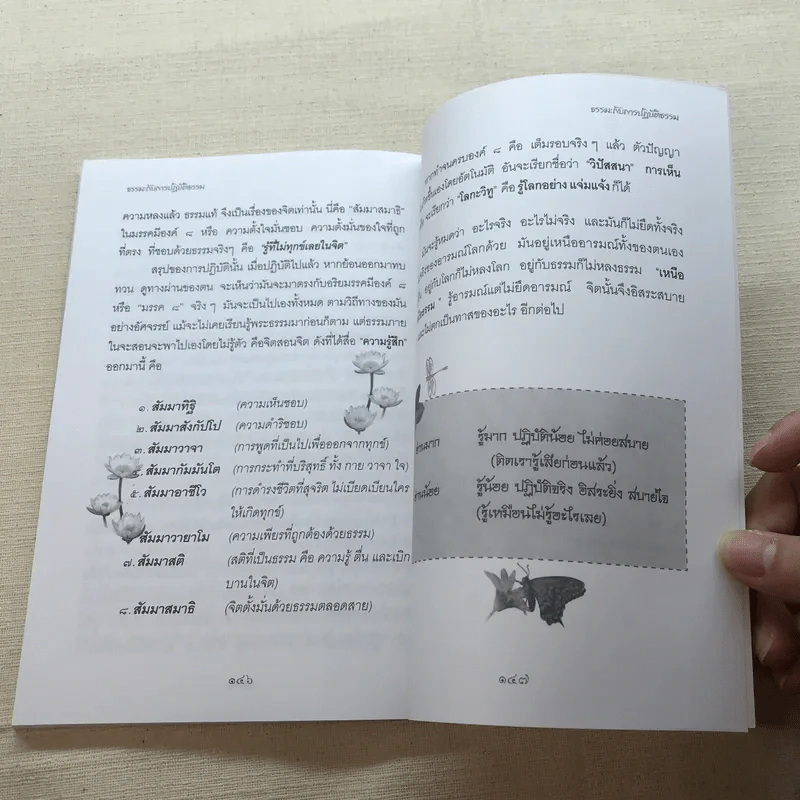 ธรรมะกับการปฏิบัติธรรม
ความหลงแล้ว ธรรมแท้ จึงเป็นเรื่องของจิตเท่านั้น นี่คือ "สัมมาสมาธิ"
ในมรรคมีองค์ ๘ หรือ ความตั้งใจมั่นชอบ ความตั้งมั่นของใจที่ถูก
ที่ตรง ที่ชอบด้วยธรรมจริงๆ คือ "รู้ที่ไม่ทุกข์เลยในจิต"
สรุปของการปฏิบัตินั้น เมื่อปฏิบัติไปแล้ว หากย้อนออกมาทบ
ทวน ดูทางผ่านของตน จะเห็นว่ามันจะมาตรงกับอริยมรรคมีองค์ ๘
หรือ "มรรค ๘" จริงๆ มันจะเป็นไปเองทั้งหมด ตามวิถีทางของมัน
อย่างอัศจรรย์ แม้จะไม่เคยเรียนรู้พระธรรมมาก่อนก็ตาม แต่ธรรมภาย
ในจะสอนจะพาไปเองโดยไม่รู้ตัว คือจิตสอนจิต ดังที่ได้สื่อ "ความรู้สึก"
ออกมานี้ คือ
๑. สัมมาทิฐิ (ความเห็นชอบ)
๒. สัมมาสังกัปโป (ความดำริชอบ)
๓. สัมมาวาจา (การพูดที่เป็นไปเพื่อออกจากทุกข์)
สัมมากัมมันโต (การกระทำที่บริสุทธิ์ ทั้ง กาย วาจา ใจ)
๕. สัมมาอาชีโว (การดำรงชีวิตที่สุจริต ไม่เบียดเบียนใคร
ให้เกิดทุกข์)
สัมมาวายาโม (ความเพียรที่ถูกต้องด้วยธรรม)
๗. สัมมาสติ (สติที่เป็นธรรม คือ ความรู้ ตื่น และเบิก
บานในจิต)
๘. สัมมาสมาธิ (จิตตั้งมั่นด้วยธรรมตลอดสาย)
๑๔๖
ธรรมะกับการปฏิบัติธรรม
ทำจนครบองค์ ๘ คือ เต็มรอบจริงๆ แล้ว ตัวปัญญา
ขึ้นเองโดยอัตโนมัติ อันจะเรียกชื่อว่า "วิปัสสนา" การเห็น
จะเรียกว่า "โลกะวิทู" คือ รู้โลกอย่าง แจ่มแจ้ง ก็ได้
จะรู้หมดว่า อะไรจริง อะไรไม่จริง และมันก็ไม่ยึดทั้งจริง
ของอารมณ์โลกด้วย มันอยู่เหนืออารมณ์ทั้งของตนเอง
อยู่กับโลกก็ไม่หลงโลก อยู่กับธรรมก็ไม่หลงธรรม "เหนือ
รู้อารมณ์แต่ไม่ยึดอารมณ์ จิตนั้นจึงอิสระสบาย
ไม่ตกเป็นทาสของอะไร อีกต่อไป
รู้มาก ปฏิบัติน้อย ไม่ค่อยสบาย
(ติดเรารู้เสียก่อนแล้ว)
รู้น้อย ปฏิบัติจริง อิสระยิ่ง สบายใจ
(รู้เหมือนไม่รู้อะไรเลย)
๑๔๗